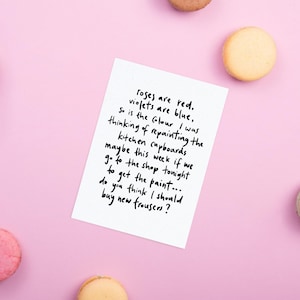 roses are red,
violets are blue,
so is the colour I was
thinking of repainting the
kitchen cupboards
maybe this week if we
go to the shop tonight
to get the paint...
do you think I should
buy new trousers?